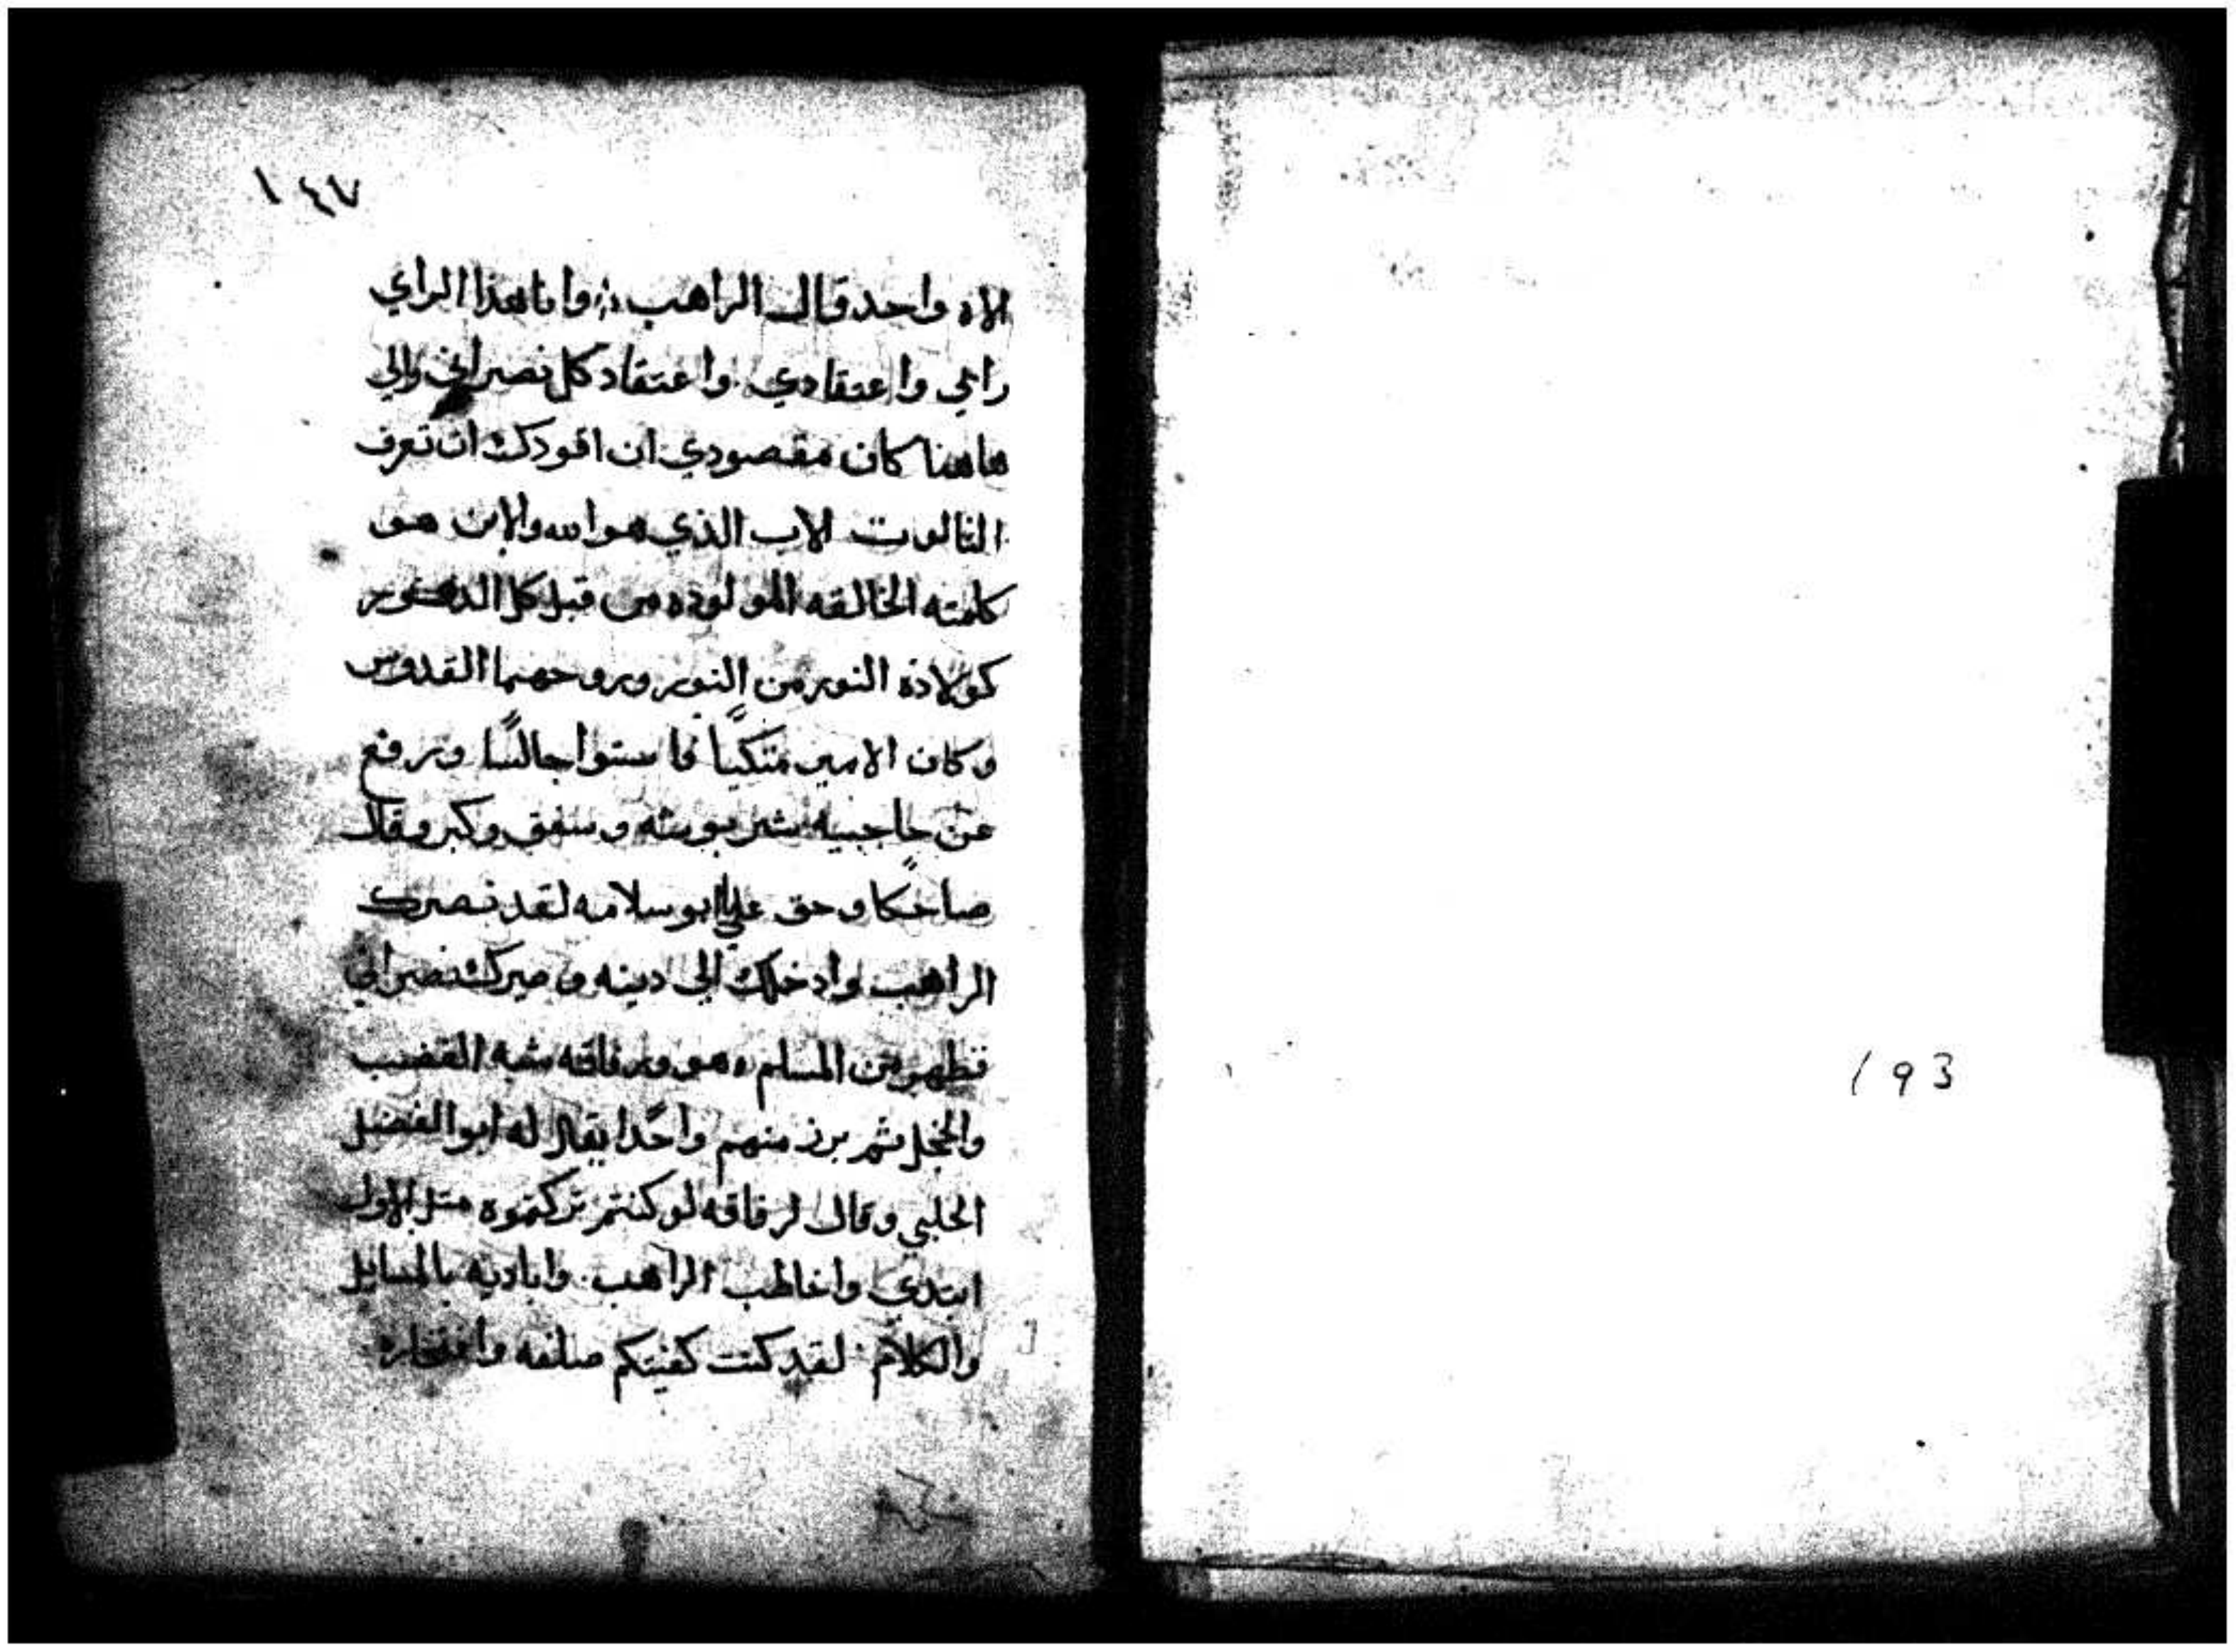 ١٤٧
الاه واحد قال الراهب وانا هذا الراي
رائي واعتقادي واعتقاد كل نصراني والي
هاهنا كان مقصودي ان اقودك ان تعرف
الثالوت الاب الذي هو الله والابن هو
كلمته الخالقه المولوده من قبل كل الدهور
كولادة النور من النور وروحهما القدوس
وكان الامير متكيًا فاستوا جالسًا ورفع
عن حاجبيه شربوشه وسفق وكبر وقال
ضاحكًا وحق علي ابو سلامه لقد نصرك
الراهب وادخلك الي دينه وصيرك نصراني
فظهر من المسلم هو ورفاقه شبه الغضب
والخجل ثم برز منهم واحدًا يقال له ابو الفضل
الحلبي وقال لرفاقه لو كنتم تركتموه متل الاول
ابتدي واخاطب الراهب واباديه بالمسايل
والكلام لقد كنت كفيتكم صلفه وافتخاره
193